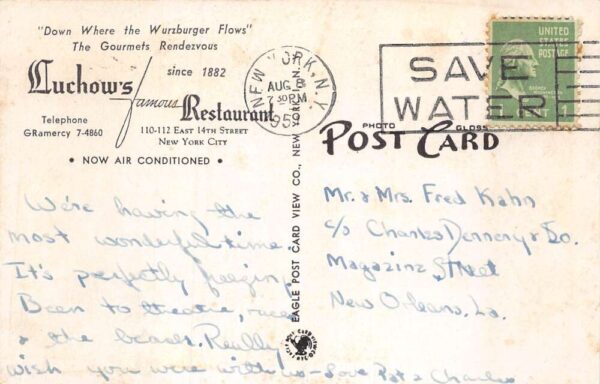 "Down Where the Wurzburger Flows"
The Gourmets Rendezvous
Luchow's since 1882
famous Restaurant
Telephone
GRamercy 7-4860
110-112 East 14th Street
New York City
• NOW AIR CONDITIONED •
NEW YORK, N.Y.
AUG 8
7 30 PM
195
SAVE
WATER
UNITED
STATES
POSTAGE
GEORGE
WASHINGTON
1
PHOTO GLOSS
POST CARD
EAGLE POST CARD VIEW CO., NEW YORK
We're having the
most wonderful time
It's perfectly freezing
Been to theatre, races
& the beach. Really
wish you were with us - Love Pat & Charles
Mr. & Mrs. Fred Kahn
c/o Charles Dennery & Co.
Magazine Street
New Orleans, La.